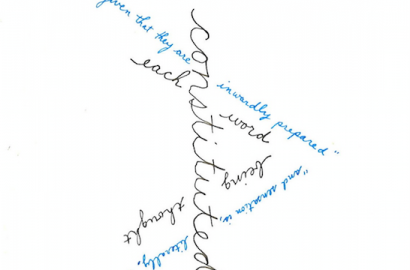 given that they are
inwardly prepared"
constituted
each
word
being
thought
"and sensation is,
literally,